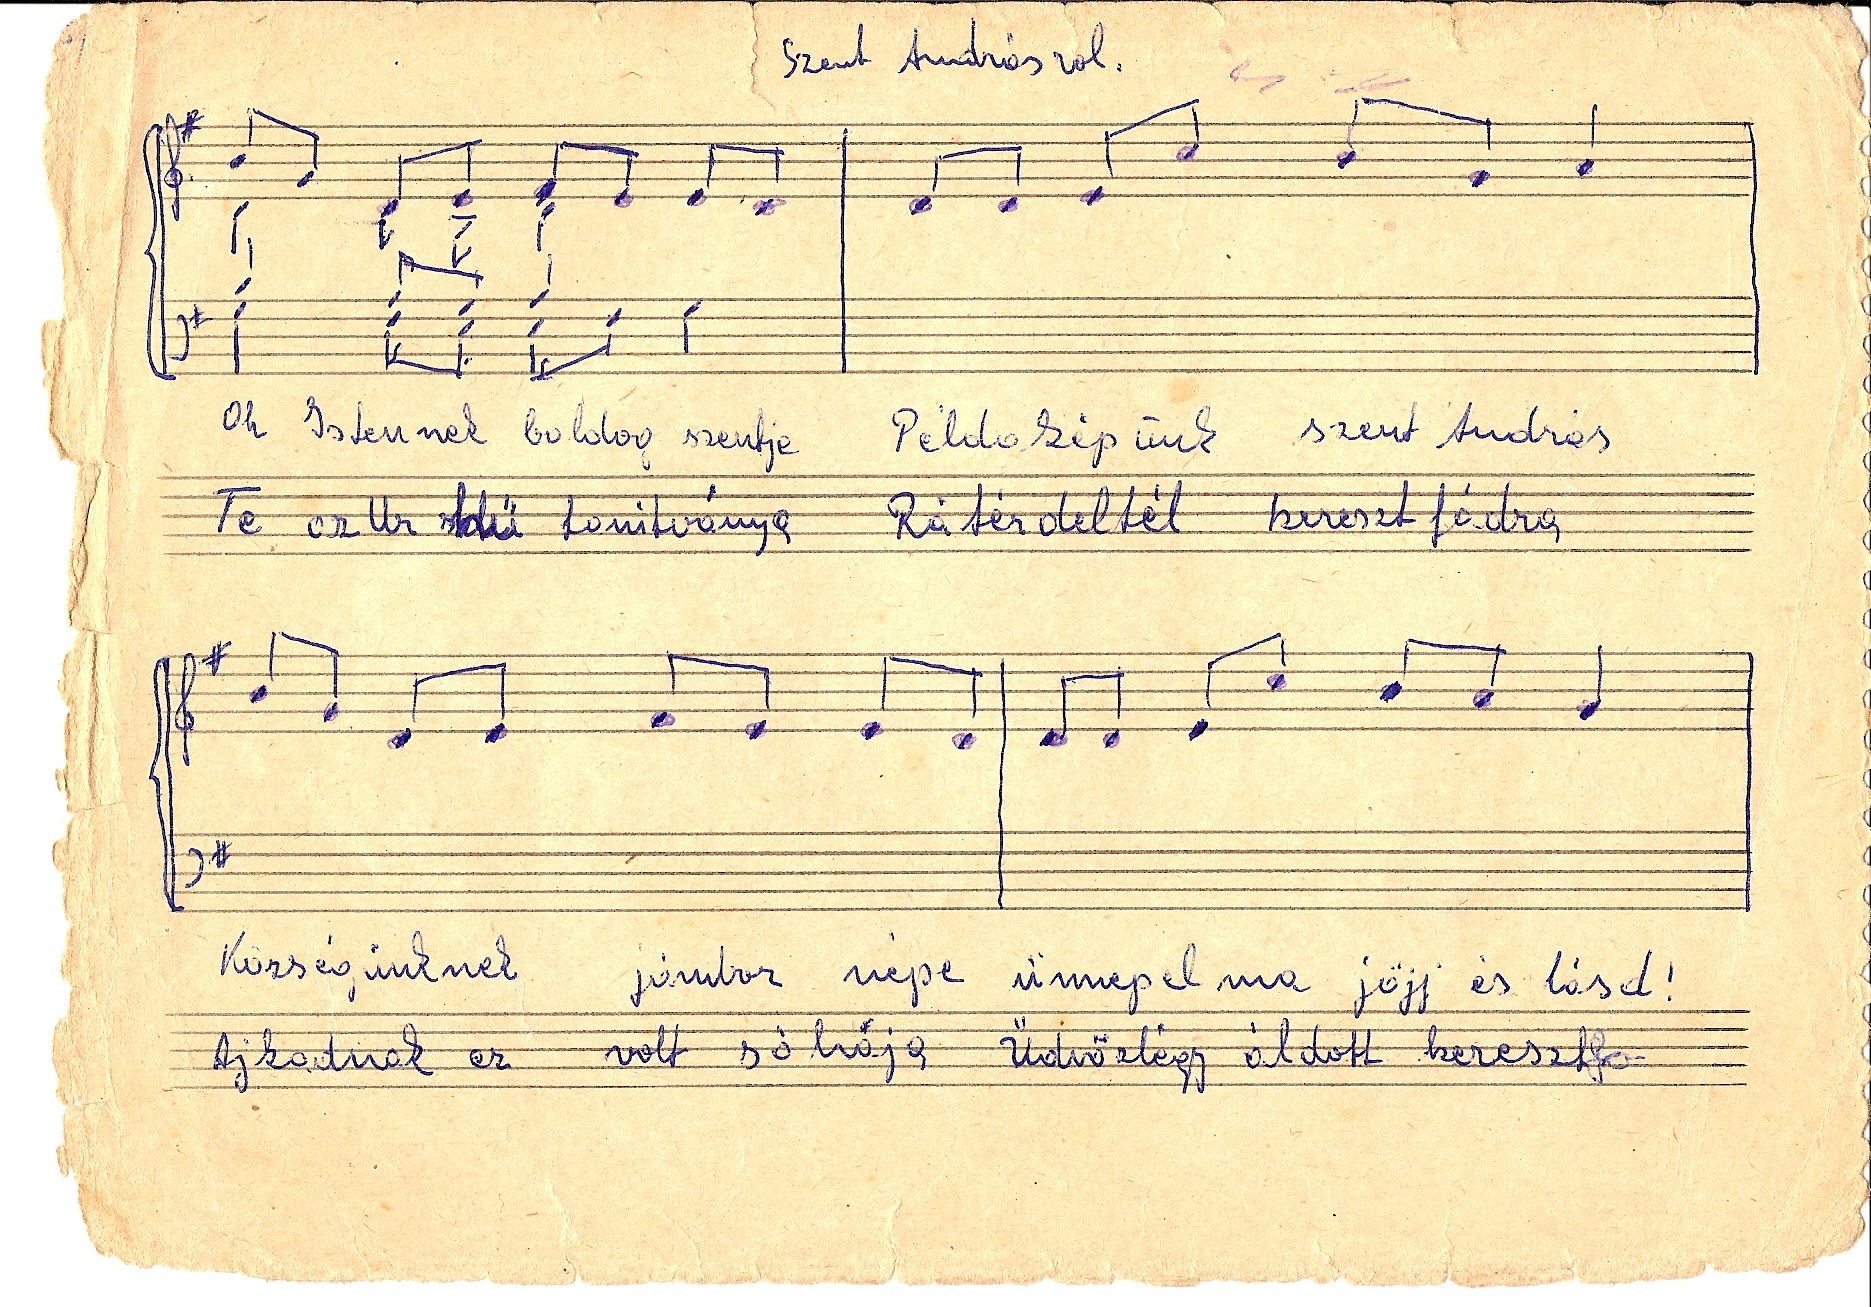 Szent Andrásrol.
Oh Istennek boldog szentje Példaképünk szent András
Te az Ur hü tanitványa Rátérdeltél keresztfádra
Községünknek jámbor népe ünnepel ma jöjj és lásd!
Ajkadnak ez volt sóhája Üdvözlégy áldott keresztfa